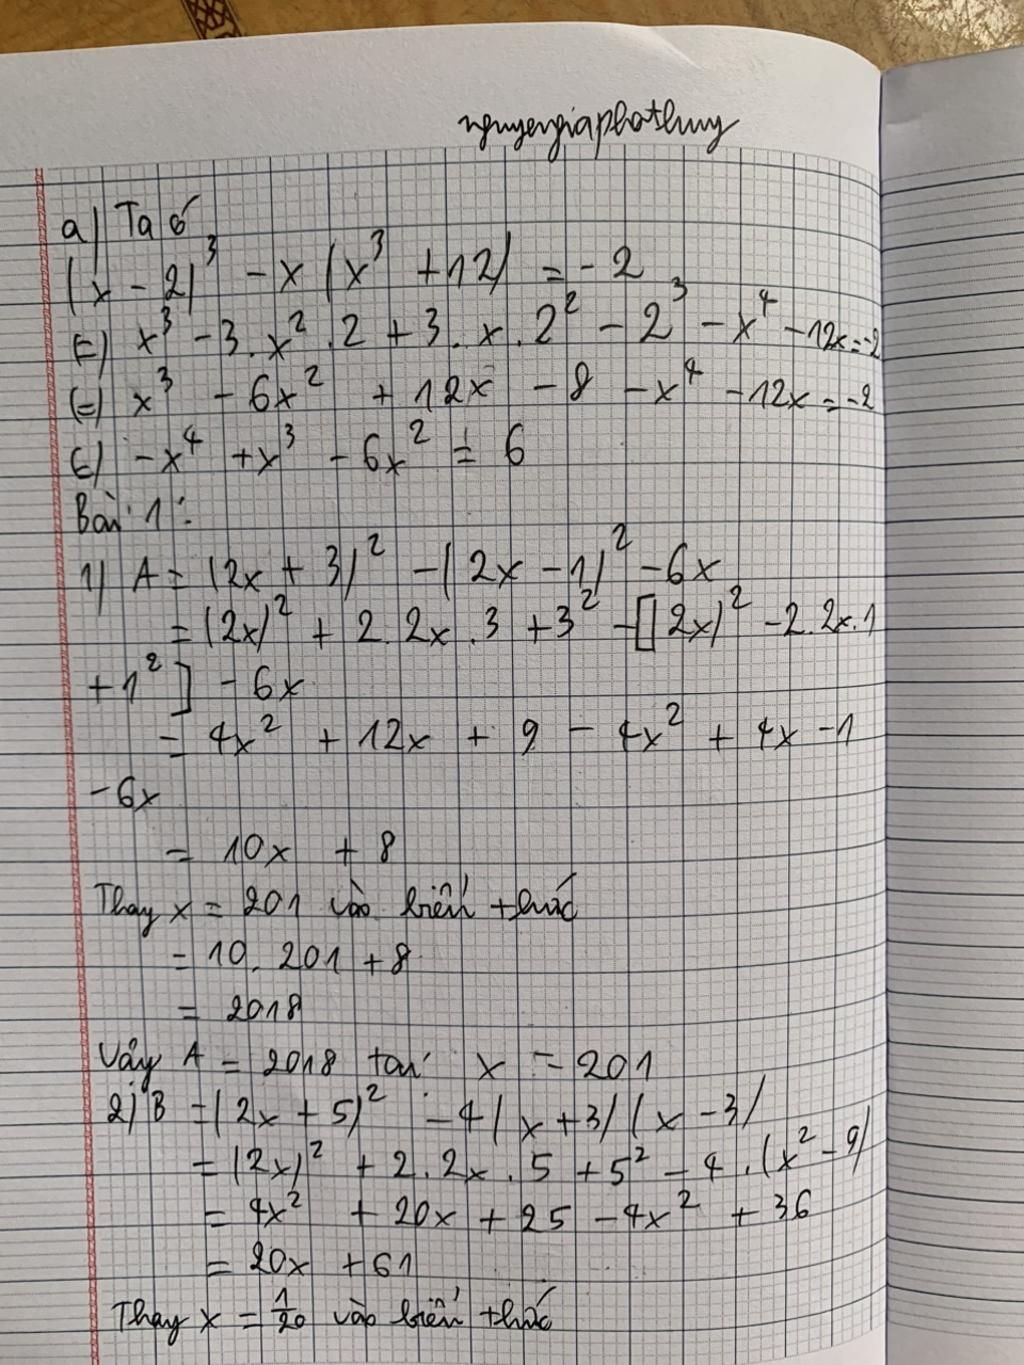 nguyengiaphothuy
a) Ta có
(x - 2)³ - x(x³ + 12) = -2
(=) x³ - 3.x².2 + 3.x.2² - 2³ - x⁴ - 12x = -2
(=) x³ - 6x² + 12x - 8 - x⁴ - 12x = -2
(=) -x⁴ + x³ - 6x² = 6
Bài 1:
1) A = (2x + 3)² - (2x - 1)² - 6x
= (2x)² + 2.2x.3 + 3² - [(2x)² - 2.2x.1
+ 1²] - 6x
= 4x² + 12x + 9 - 4x² + 4x - 1
- 6x
= 10x + 8
Thay x = 201 vào biểu thức
= 10.201 + 8
= 2018
Vậy A = 2018 tại x = 201
2) B = (2x + 5)² - 4(x + 3)(x - 3)
= (2x)² + 2.2x.5 + 5² - 4.(x² - 9)
= 4x² + 20x + 25 - 4x² + 36
= 20x + 61
Thay x = 1/20 vào biểu thức